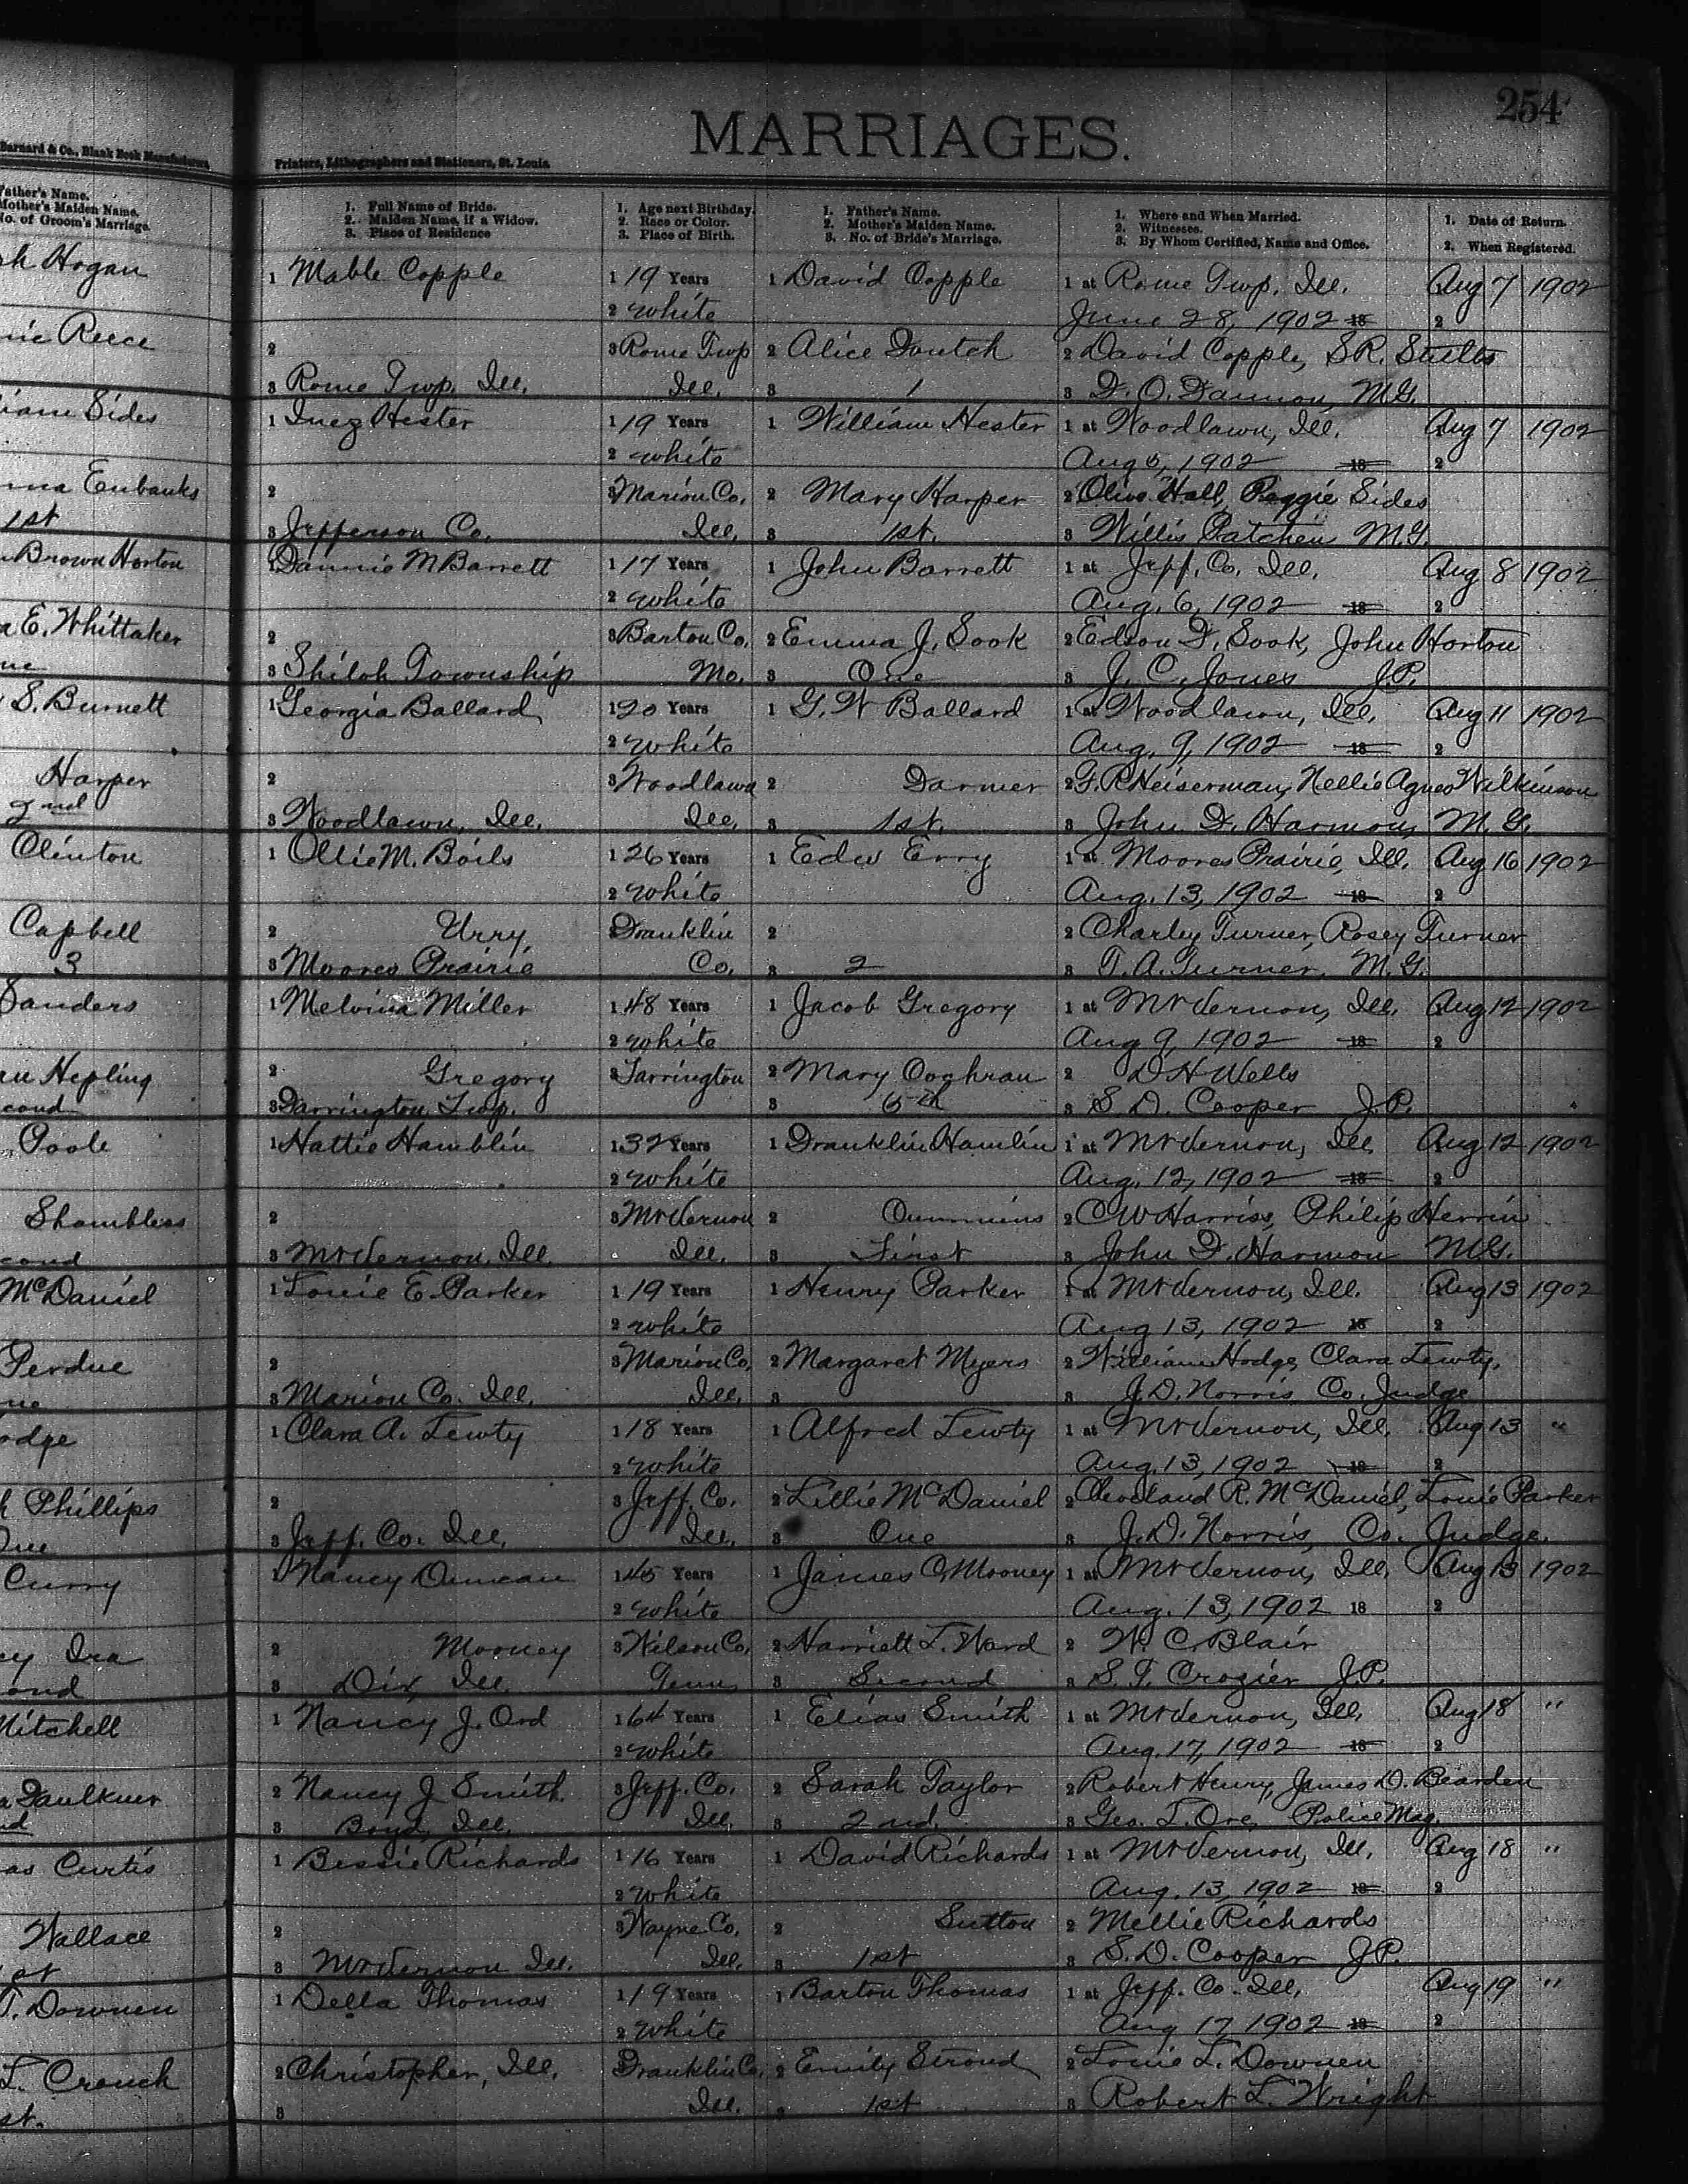 254
MARRIAGES.
Barnard & Co., Blank Book Manufacturers,
Printers, Lithographers and Stationers, St. Louis.
Father's Name.
Mother's Maiden Name.
No. of Groom's Marriage.
1. Full Name of Bride.
2. Maiden Name, if a Widow.
3. Place of Residence
1. Age next Birthday.
2. Race or Color.
3. Place of Birth.
1. Father's Name.
2. Mother's Maiden Name.
3. No. of Bride's Marriage.
1. Where and When Married.
2. Witnesses.
3. By Whom Certified, Name and Office.
1. Date of Return.
2. When Registered.
Hogan 1 Mable Copple 1 19 Years 1 David Copple 1 at Rome Twp. Ill. Aug 7 1902
2 White June 28, 1902 18 2
Reece 2 3 Rome Twp 2 Alice Doutch 2 David Copple, S.R. Stilts
3 Rome Twp. Ill. Ill. 3 1 3 D. O. Damon, M.G.
Sides 1 Inez Hester 1 19 Years 1 William Hester 1 at Woodlawn, Ill. Aug 7 1902
2 White Aug 5, 1902 18 2
Eubanks 2 3 Marion Co. 2 Mary Harper 2 Olive Hall, Reggie Sides
1st 3 Jefferson Co. Ill. 3 1st. 3 Willis Patchen M.G.
Brown Horton 1 Dannie M Barrett 1 17 Years 1 John Barrett 1 at Jeff. Co. Ill. Aug 8 1902
2 White Aug. 6, 1902 18 2
E. Whittaker 2 3 Barton Co. 2 Emma J. Sook 2 Edson D. Sook, John Horton
3 Shiloh Township Mo. 3 One 3 J. C. Jones J.P.
S. Burnett 1 Georgia Ballard 1 20 Years 1 G. W Ballard 1 at Woodlawn, Ill. Aug 11 1902
2 White Aug. 9, 1902 18 2
Harper 2 3 Woodlawn 2 Darmer 2 G. R Heiserman, Nellie Agnes Wilkinson
2nd 3 Woodlawn, Ill. Ill. 3 1st. 3 John D. Harmon, M. G.
Clinton 1 Ollie M. Boils 1 26 Years 1 Edw Erry 1 at Moores Prairie, Ill. Aug 16 1902
2 White Aug. 13, 1902 18 2
Capbell 2 Urry 3 Franklin 2 2 Charley Turner, Rosey Turner
3 3 Moores Prairie Co. 3 2 3 T. A. Turner, M. G.
Sanders 1 Melvina Miller 1 48 Years 1 Jacob Gregory 1 at Mt Vernon, Ill. Aug 12 1902
2 White Aug 9, 1902 18 2
Hepling 2 Gregory 3 Farrington 2 Mary Cochran 2 D H Wells
3 Farrington Twp. 3 5th 3 S. D. Cooper J.P.
Poole 1 Hattie Hamblin 1 32 Years 1 Franklin Hamlin 1 at Mt Vernon, Ill Aug 12 1902
2 White Aug. 12, 1902 18 2
Shambless 2 3 Mt Vernon 2 Cummins 2 C W Harriss, Philip Herrin
3 Mt Vernon, Ill. Ill. 3 First 3 John D. Harmon M.G.
McDaniel 1 Louie E. Parker 1 19 Years 1 Henry Parker 1 at Mt Vernon, Ill. Aug 13 1902
2 White Aug 13, 1902 18 2
Perdue 2 3 Marion Co, 2 Margaret Myers 2 William Hodge, Clara Lewty.
3 Marion Co. Ill. Ill. 3 3 J. D. Norris Co. Judge
1 Clara A. Lewty 1 18 Years 1 Alfred Lewty 1 at Mt Vernon, Ill. Aug 13 "
2 White Aug. 13, 1902 18 2
Phillips 2 3 Jeff. Co. 2 Lillie McDaniel 2 Cleveland R. McDaniel, Louie Parker
3 Jeff. Co. Ill. Ill. 3 One 3 J. D. Norris, Co. Judge.
Curry 1 Nancy Duncan 1 45 Years 1 James C. Mooney 1 at Mt Vernon, Ill. Aug 13 1902
2 White Aug. 13, 1902 18 2
Ira 2 Mooney 3 Wilson Co. 2 Harriett L. Ward 2 W. C. Blair
3 Dix, Ill. Tenn 3 Second 3 S. T. Crozier J.P.
Mitchell 1 Nancy J. Ord 1 64 Years 1 Elias Smith 1 at Mt Vernon, Ill. Aug 18 "
2 White Aug. 17, 1902 18 2
Faulkner 2 Nancy J Smith 3 Jeff. Co. 2 Sarah Taylor 2 Robert Henry, James D. Bearden
3 Boyd, Ill. Ill. 3 2nd. 3 Geo. L. Ore, Police Mag.
Curtis 1 Bessie Richards 1 16 Years 1 David Richards 1 at Mt Vernon, Ill. Aug 18 "
2 White Aug. 13, 1902 18 2
Wallace 2 3 Wayne Co. 2 Sutton 2 Mellie Richards
3 Mt Vernon Ill. Ill. 3 1st 3 S. D. Cooper J.P.
T. Downen 1 Della Thomas 1 19 Years 1 Barton Thomas 1 at Jeff. Co. Ill. Aug 19 "
2 White Aug 17, 1902 18 2
L. Crouch 2 Christopher, Ill. Franklin Co. 2 Emily Stroud 2 Louie L. Downen
3 Ill. 3 1st 3 Robert L. Wright